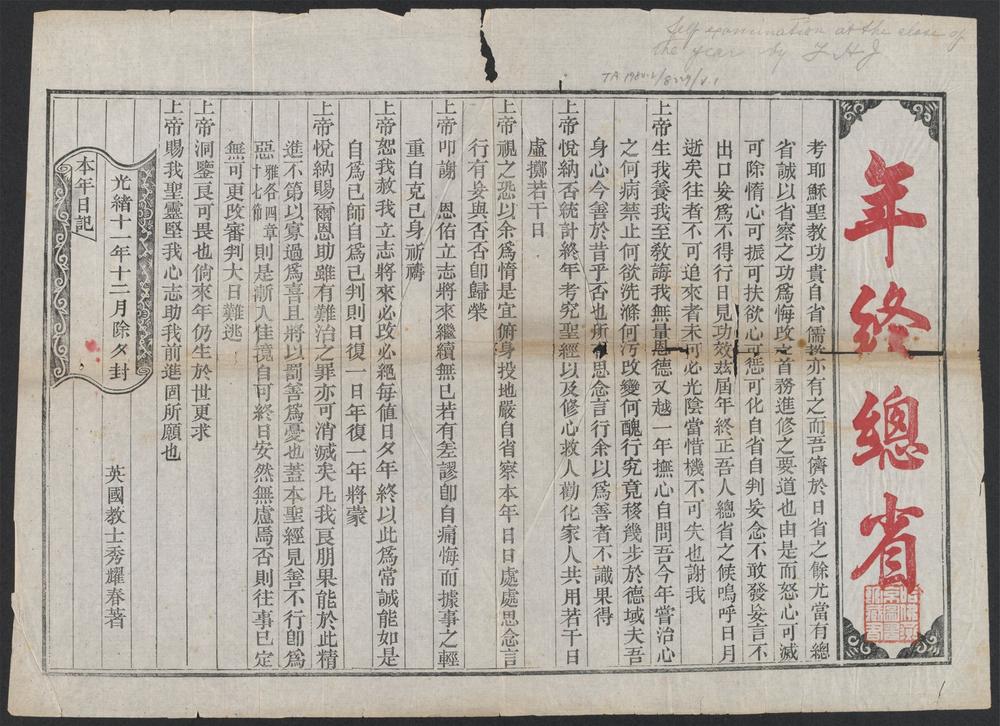 Self examination at the close of
the year by F H J
TA 1980.2/8.29/v.1
年終總省
考耶穌聖教功貴自省儒教亦有之而吾儕於日省之餘尤當有總
省誠以省察之功爲悔改之首務進修之要道也由是而怒心可滅
可除惰心可振可扶欲心可懲可化自省自判妄念不敢發妄言不
出口妄爲不得行日見功效茲屆年終正吾人總省之候嗚呼日月
逝矣往者不可追來者未可必光陰當惜機不可失也謝我
上帝生我養我至敎誨我無量恩德又越一年撫心自問吾今年嘗治心
之何病禁止何欲洗滌何汚改變何醜行究竟移幾步於德域夫吾
身心今善於昔乎否也所思念言行余以爲善者不識果得
上帝悅納否統計終年考究聖經以及修心救人勸化家人共用若干日
虛擲若干日
上帝視之恐以余爲惰是宜俯身投地嚴自省察本年日日處處思念言
行有妥與否否卽歸榮
上帝叩謝 恩佑立志將來繼續無已若有差謬卽自痛悔而據事之輕
重自克已身祈禱
上帝恕我赦我立志將來必改必絕每値日夕年終以此爲常誠能如是
自爲已師自爲已判則日復一日年復一年將蒙
上帝悅納賜爾恩助雖有難治之罪亦可消滅矣凡我良朋果能於此精
進不第以寡過爲喜且將以罰善爲憂也蓋本聖經見善不行卽爲
惡雅各四章十七節則是漸入佳境自可終日安然無慮焉否則往事已定
無可更改審判大日難逃
上帝洞鑒良可畏也倘來年仍生於世更求
上帝賜我聖靈堅我心志助我前進固所願也
英國教士秀耀春著
光緒十一年十二月除夕封
本年日記
1